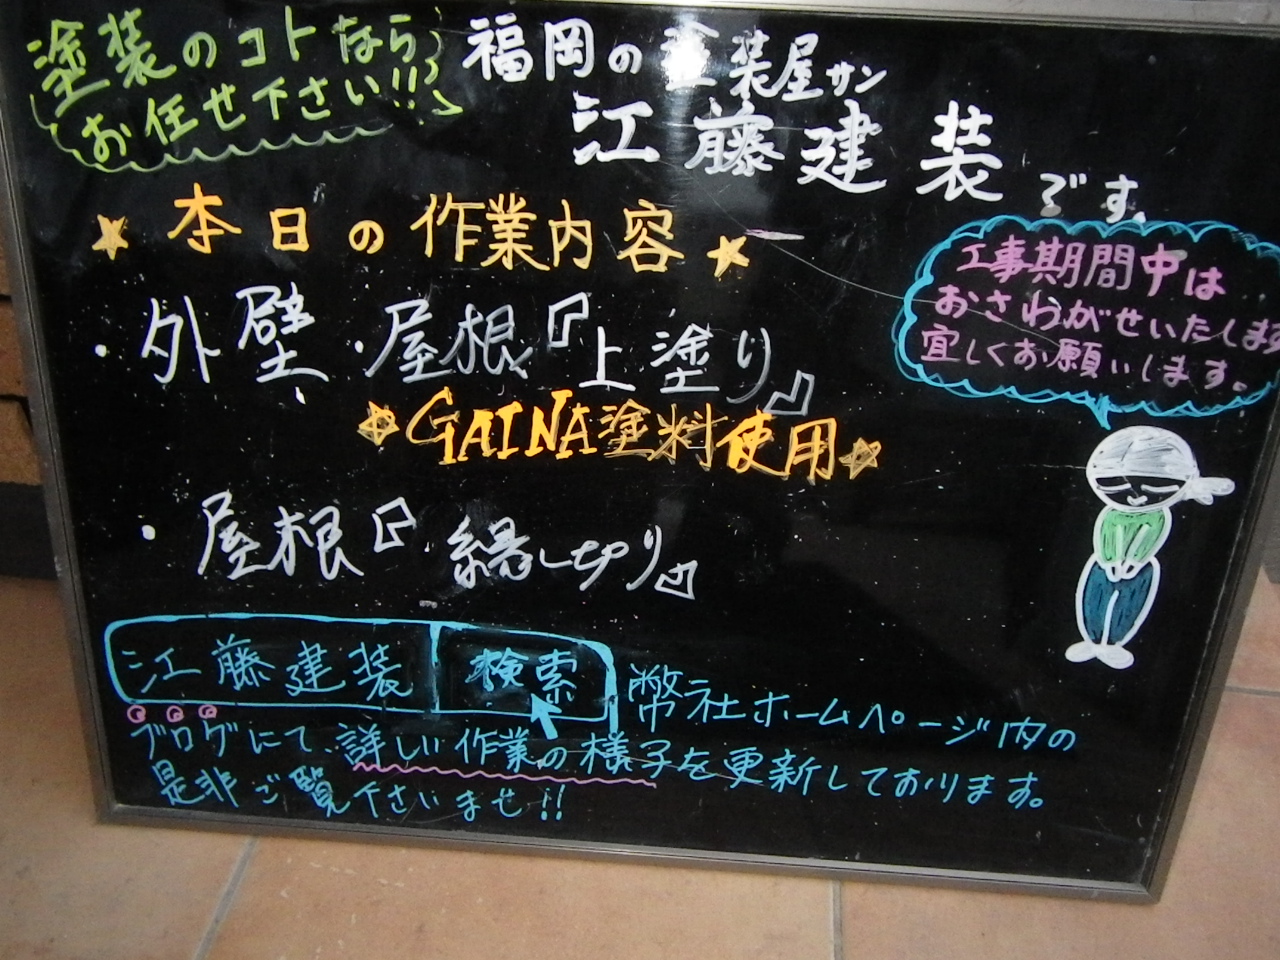 塗装のコトなら
お任せ下さい!!
福岡の塗装屋サン
江藤建装です。
★本日の作業内容★
・外壁・屋根『上塗り』
☆GAINA塗料使用☆
・屋根『縁切り』
工事期間中は
おさわがせいたします
宜しくお願いします。
江藤建装 検索
弊社ホームページ内の
ブログにて、詳しい作業の様子を更新しております。
是非ご覧下さいませ!!